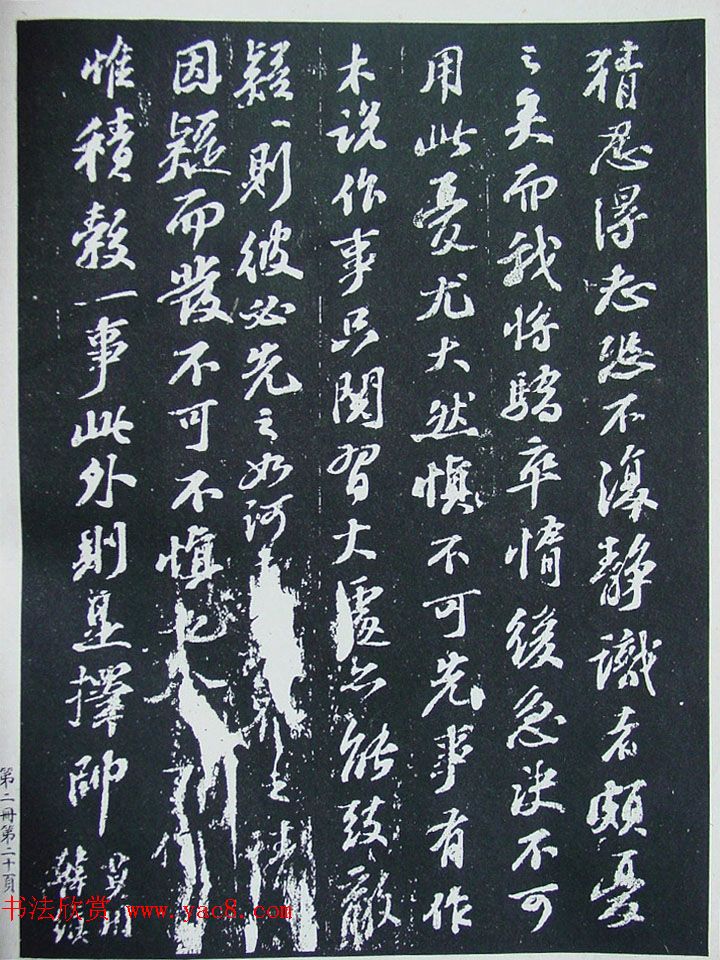 猜忍得志恐不復靜識者頗憂
之矣而我將驕卒惰緩急決不可
用此憂尤大然慎不可先事有作
木說作事只関習大處亦能致敵
疑疑則彼必先之如河
因疑而發不可不慎也
惟積穀一事此外則是擇帥
第二冊第二十頁
书法欣赏 www.yac8.com